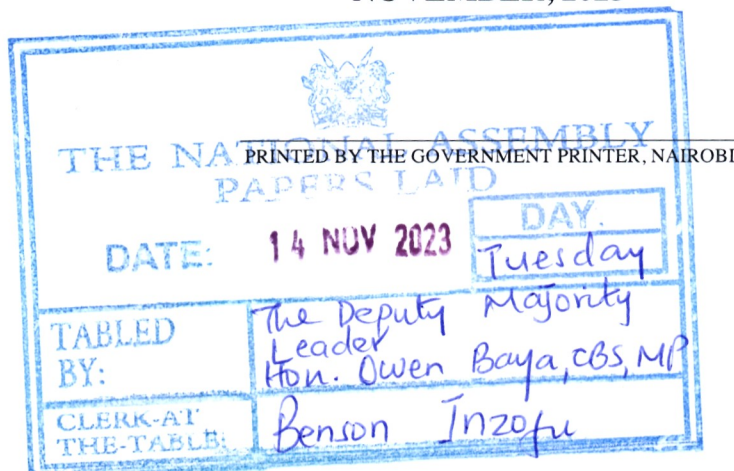 THE NATIONAL ASSEMBLY
PRINTED BY THE GOVERNMENT PRINTER, NAIROBI
PAPERS LAID
DATE: 14 NOV 2023
DAY.
Tuesday
TABLED BY:
The Deputy Majority
Leader
Hon. Owen Baya, CBS, MP
CLERK-AT
THE-TABLE:
Benson Inzofu